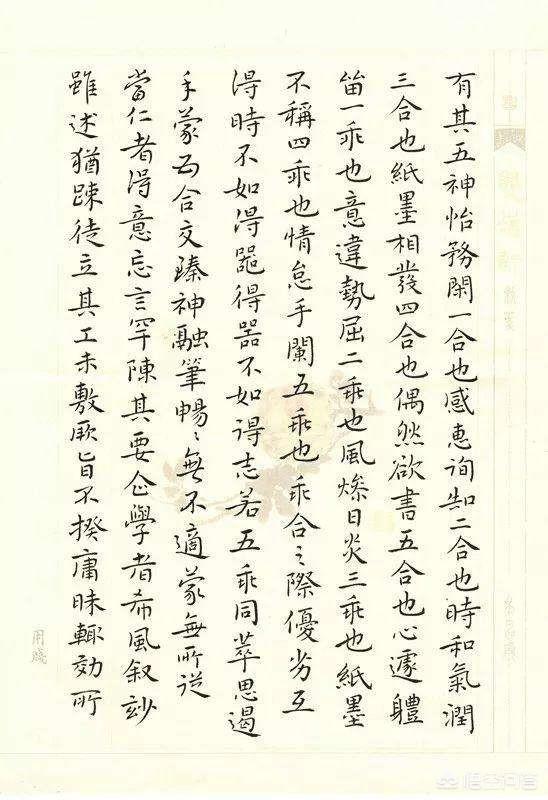 有其五神怡務閑一合也感惠詢知二合也時和氣潤
三合也紙墨相發四合也偶然欲書五合也心遽體
留一乖也意違勢屈二乖也風燥日炎三乖也紙墨
不稱四乖也情怠手闌五乖也乖合之際優劣互
得時不如得器得器不如得志若五乖同萃思遏
手蒙五合交臻神融筆暢〻無不適蒙無所從
當仁者得意忘言罕陳其要企學者希風叙妙
雖述猶疎徒立其工未敷厥旨不揆庸昧輒効所
用牋
悟空问答